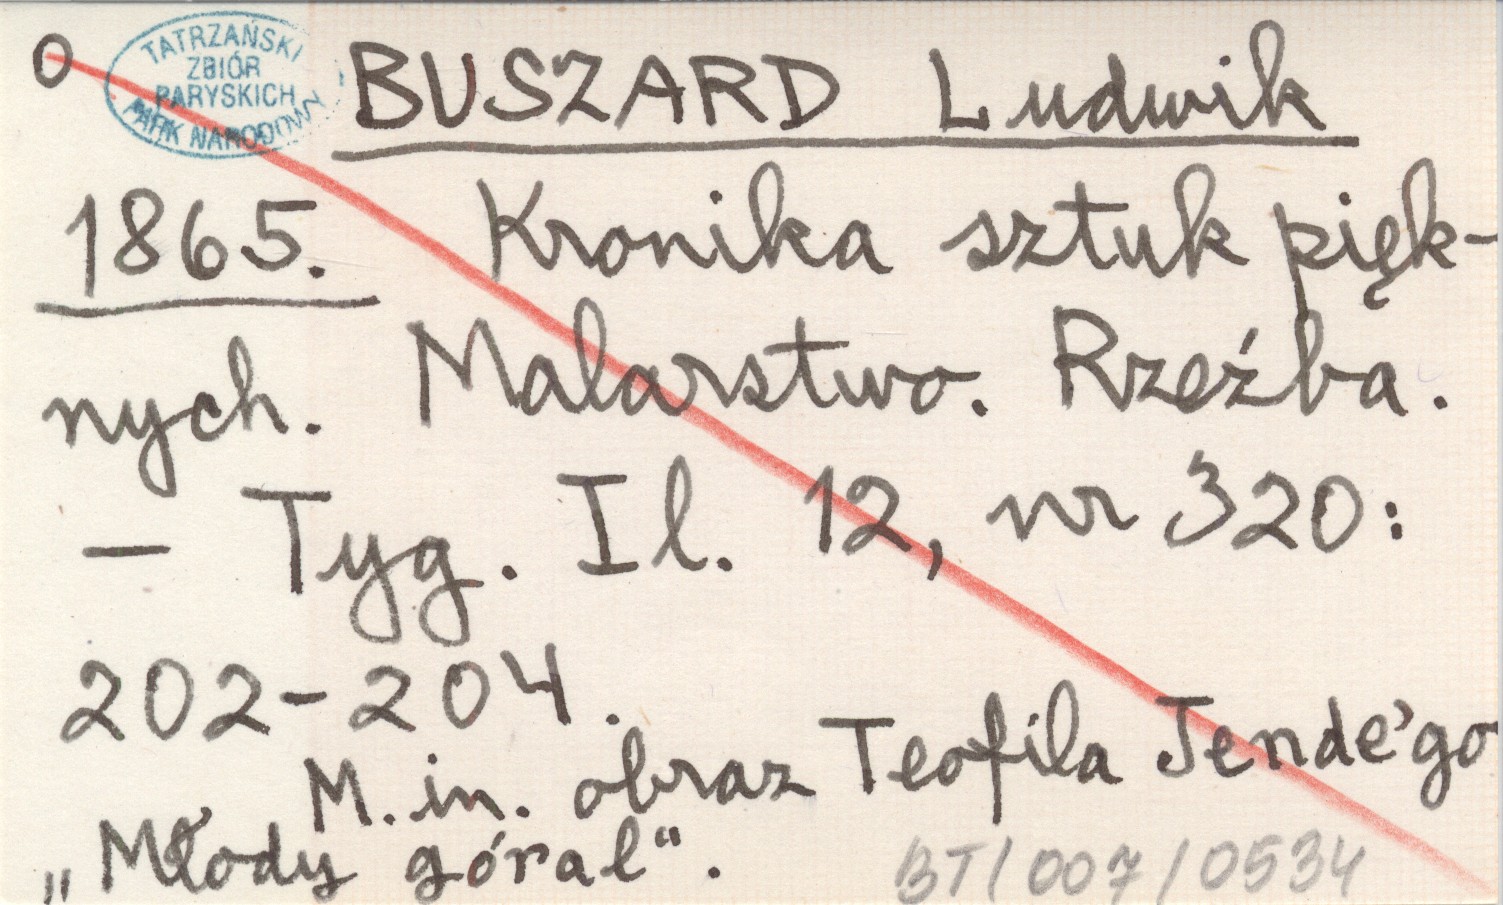 O
TATRZAŃSKI
ZBIÓR
PARYSKICH
PARK NARODOWY
BUSZARD Ludwik
1865. Kronika sztuk pięk-
nych. Malarstwo. Rzeźba.
— Tyg. Il. 12, nr 320:
202-204.
M. in. obraz Teofila Jende'go
„Młody góral".
BT/007/0534